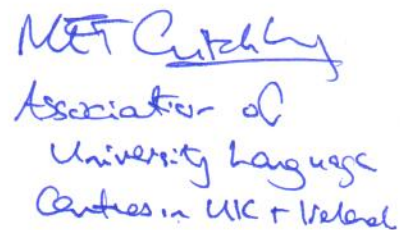 MET Critchley
Association of
University Language
Centres in UK + Ireland